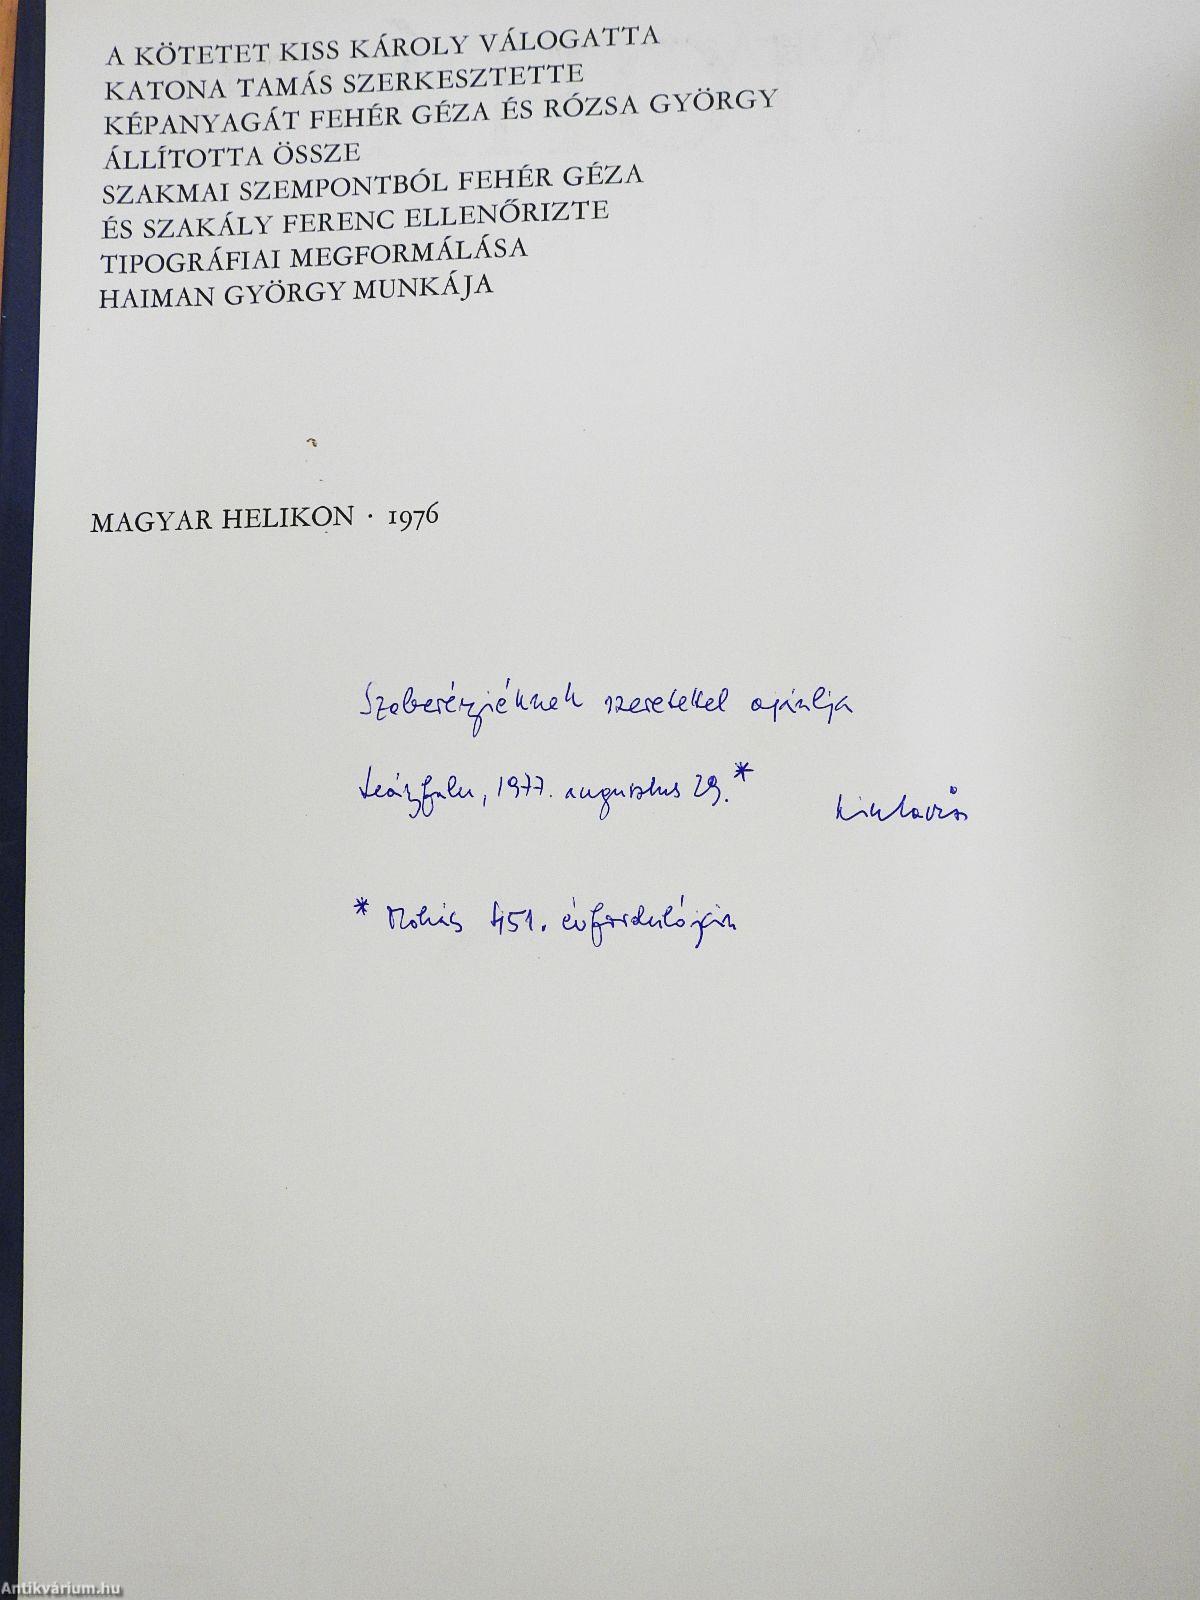 A KÖTETET KISS KÁROLY VÁLOGATTA
KATONA TAMÁS SZERKESZTETTE
KÉPANYAGÁT FEHÉR GÉZA ÉS RÓZSA GYÖRGY
ÁLLÍTOTTA ÖSSZE
SZAKMAI SZEMPONTBÓL FEHÉR GÉZA
ÉS SZAKÁLY FERENC ELLENŐRIZTE
TIPOGRÁFIAI MEGFORMÁLÁSA
HAIMAN GYÖRGY MUNKÁJA
MAGYAR HELIKON · 1976
szeretettel ajánlja
1977. augusztus 29.*
* Mohács 451. évfordulóján
Antikvárium.hu